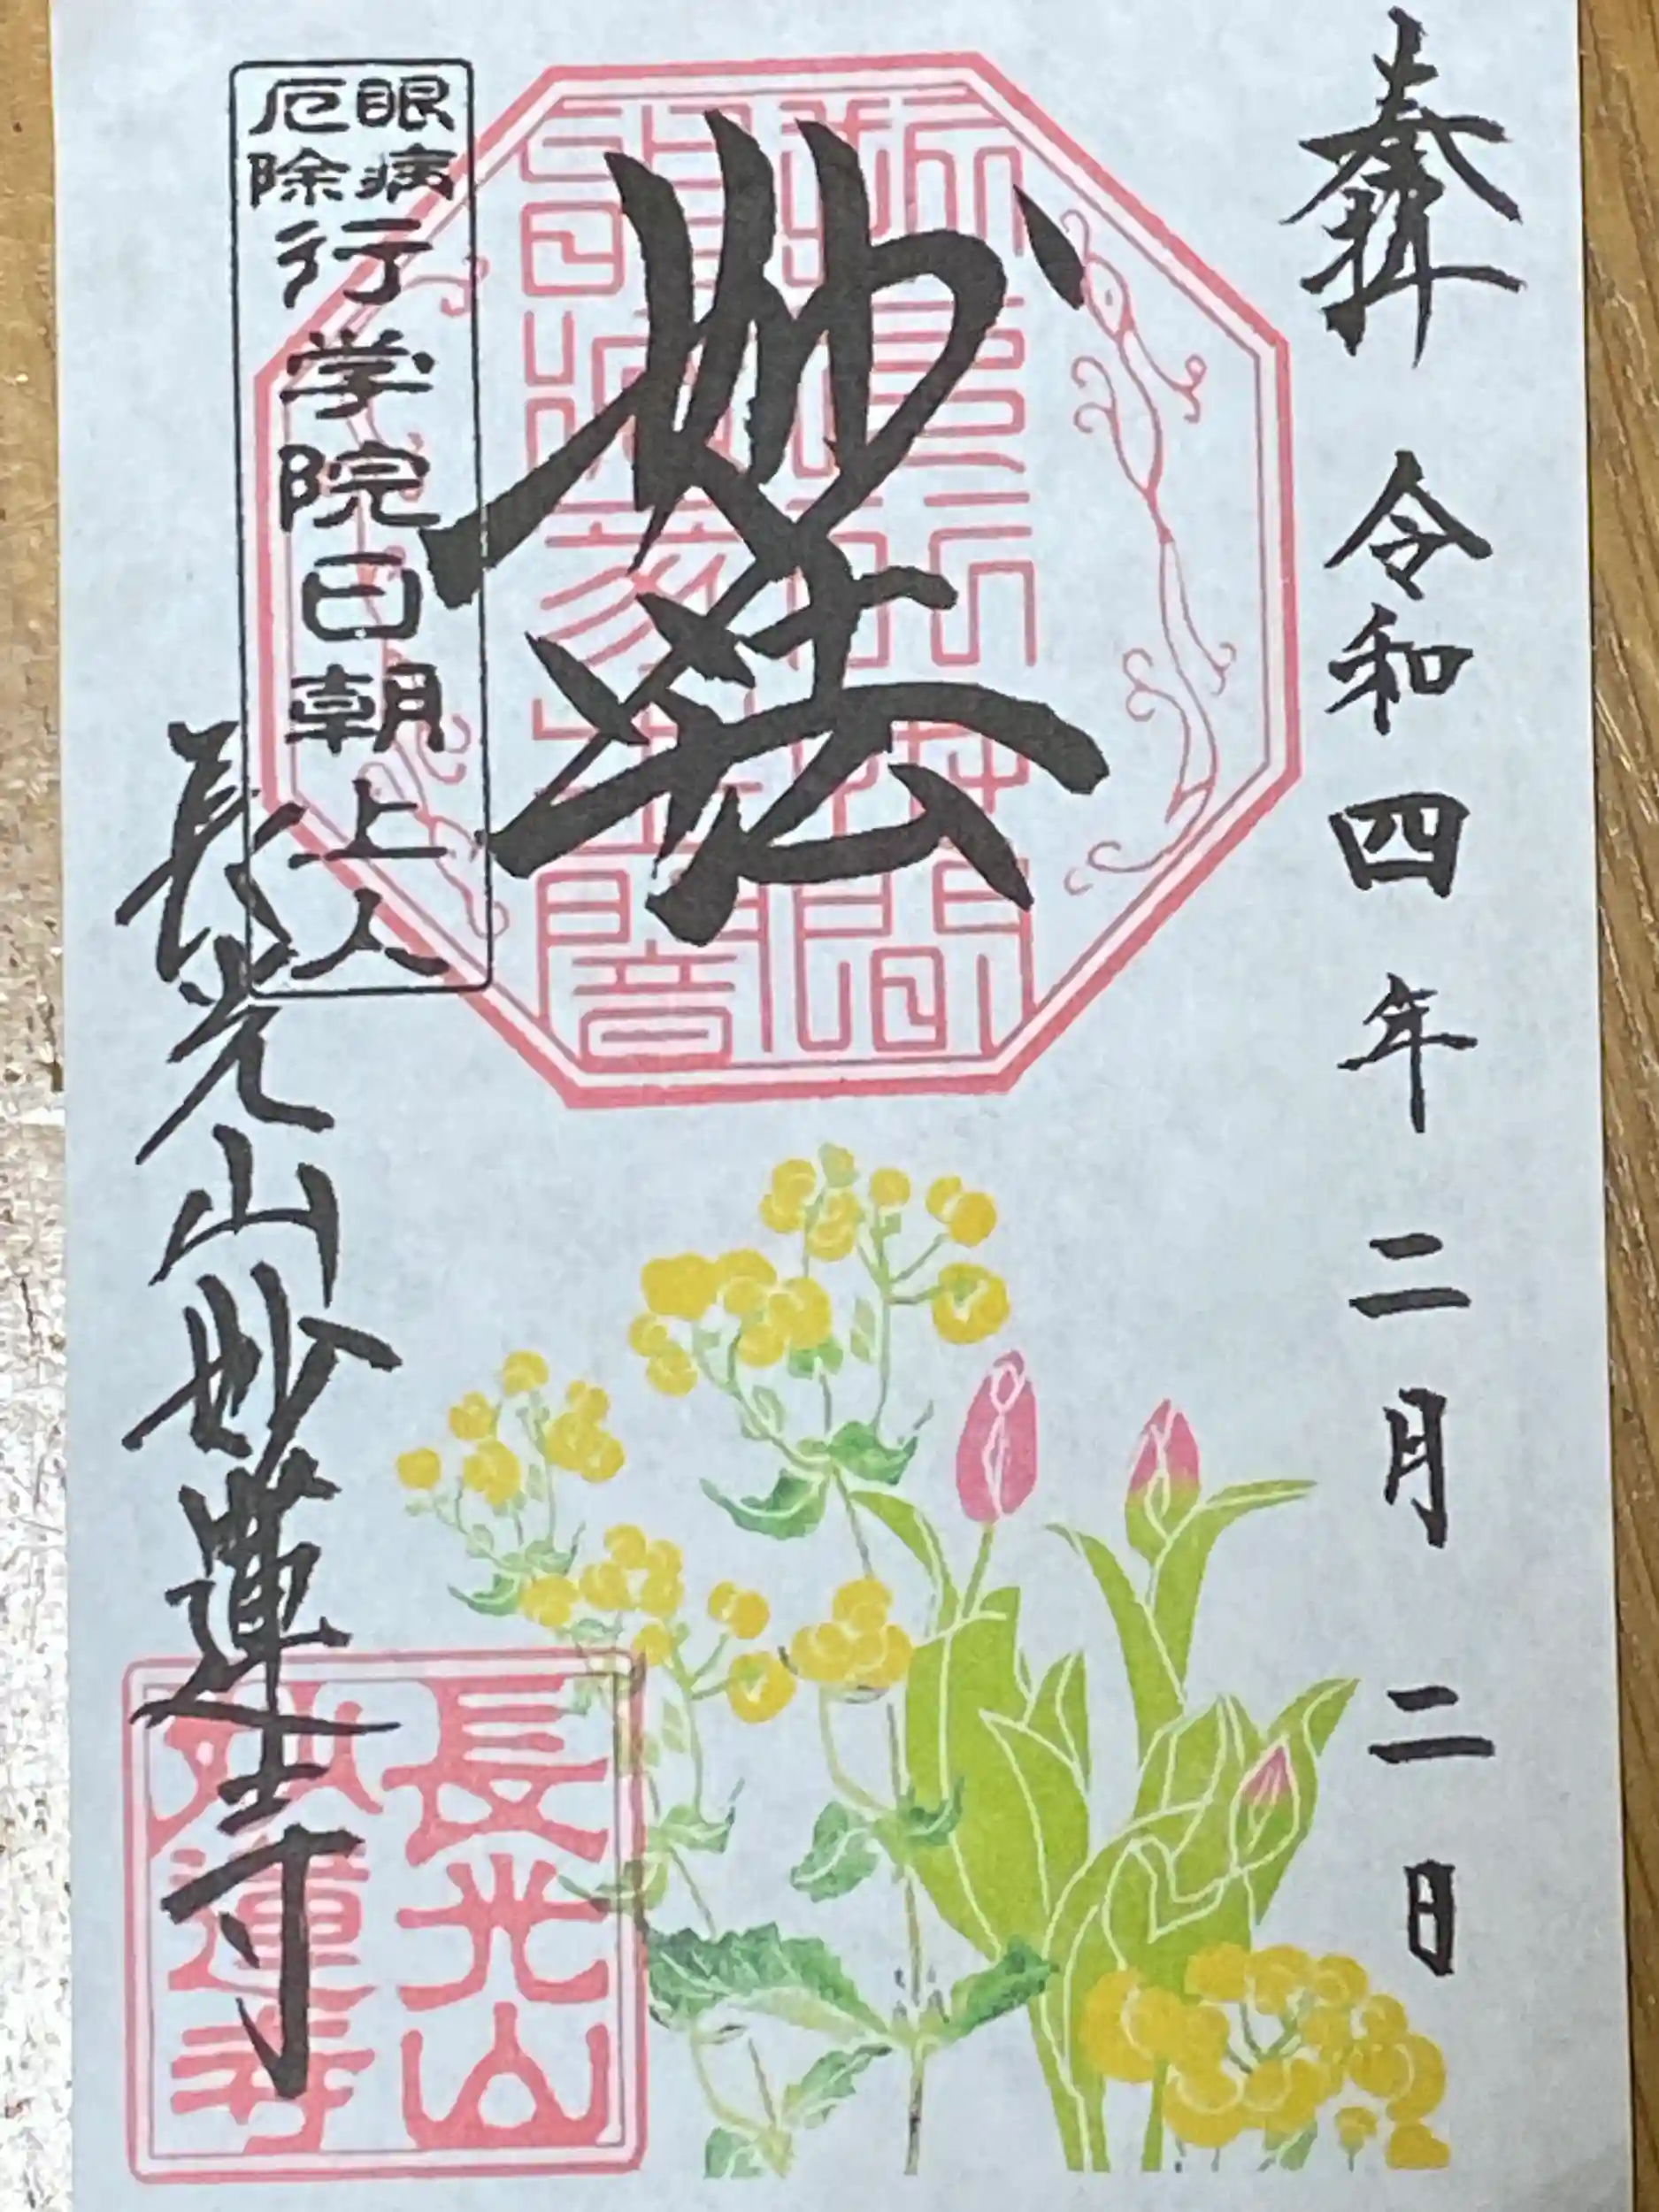 奉拝 令和四年二月二日
妙法
眼病
厄除
行学院日朝上人
長光山妙蓮寺
長光山
妙蓮寺